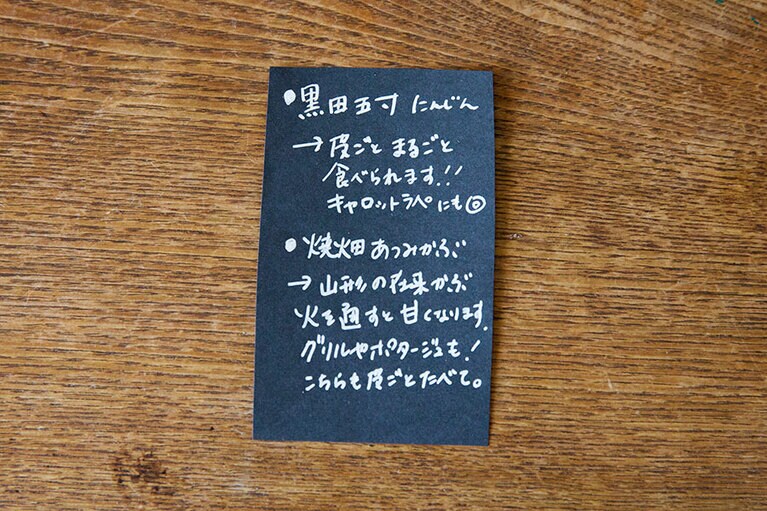 ●黒田五寸 にんじん
→皮ごと まるごと
食べられます!!
キャロットラペにも◎
●焼畑 あつみかぶ
→山形の在来かぶ
火を通すと甘くなります。
グリルやポタージュも!
こちらも皮ごとたべて。